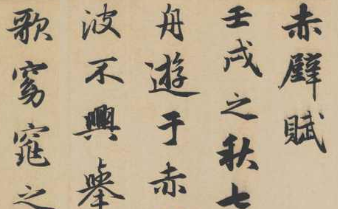 赤壁賦
壬戌之秋七
舟遊于赤
波不興舉
歌窈窕之